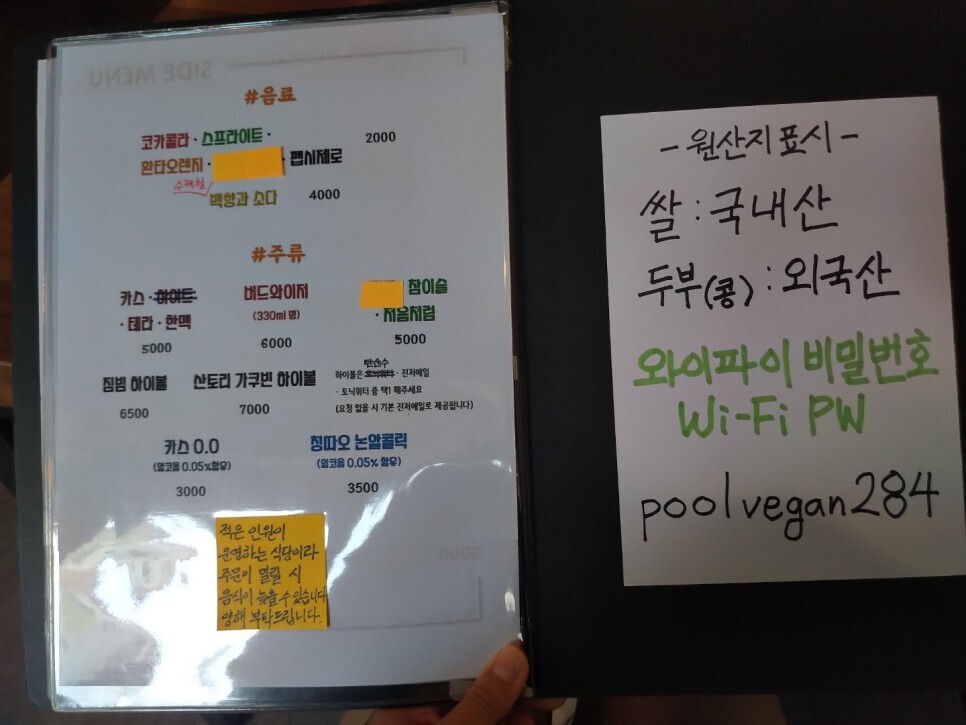 #음료
코카콜라 · 스프라이트 · 2000
환타오렌지 · · 펩시제로
수제청
백향과 소다 4000
#주류
카스 · 하이트
· 테라 · 한맥
5000
버드와이저
(330ml 병)
6000
참이슬
· 처음처럼
5000
짐빔 하이볼
6500
산토리 가쿠빈 하이볼
7000
탄산수
하이볼은 토닉워터 · 진저에일
· 토닉워터 중 택1 해주세요
(요청 없을 시 기본 진저에일로 제공됩니다)
카스 0.0
(알코올 0.05% 함유)
3000
칭따오 논알콜릭
(알코올 0.05% 함유)
3500
적은 인원이
운영하는 식당이라
주문이 밀릴 시
음식이 늦을 수 있습니다
양해 부탁드립니다.
SIDE MENU
- 원산지 표시 -
쌀 : 국내산
두부(콩) : 외국산
와이파이 비밀번호
Wi-Fi PW
poolvegan284